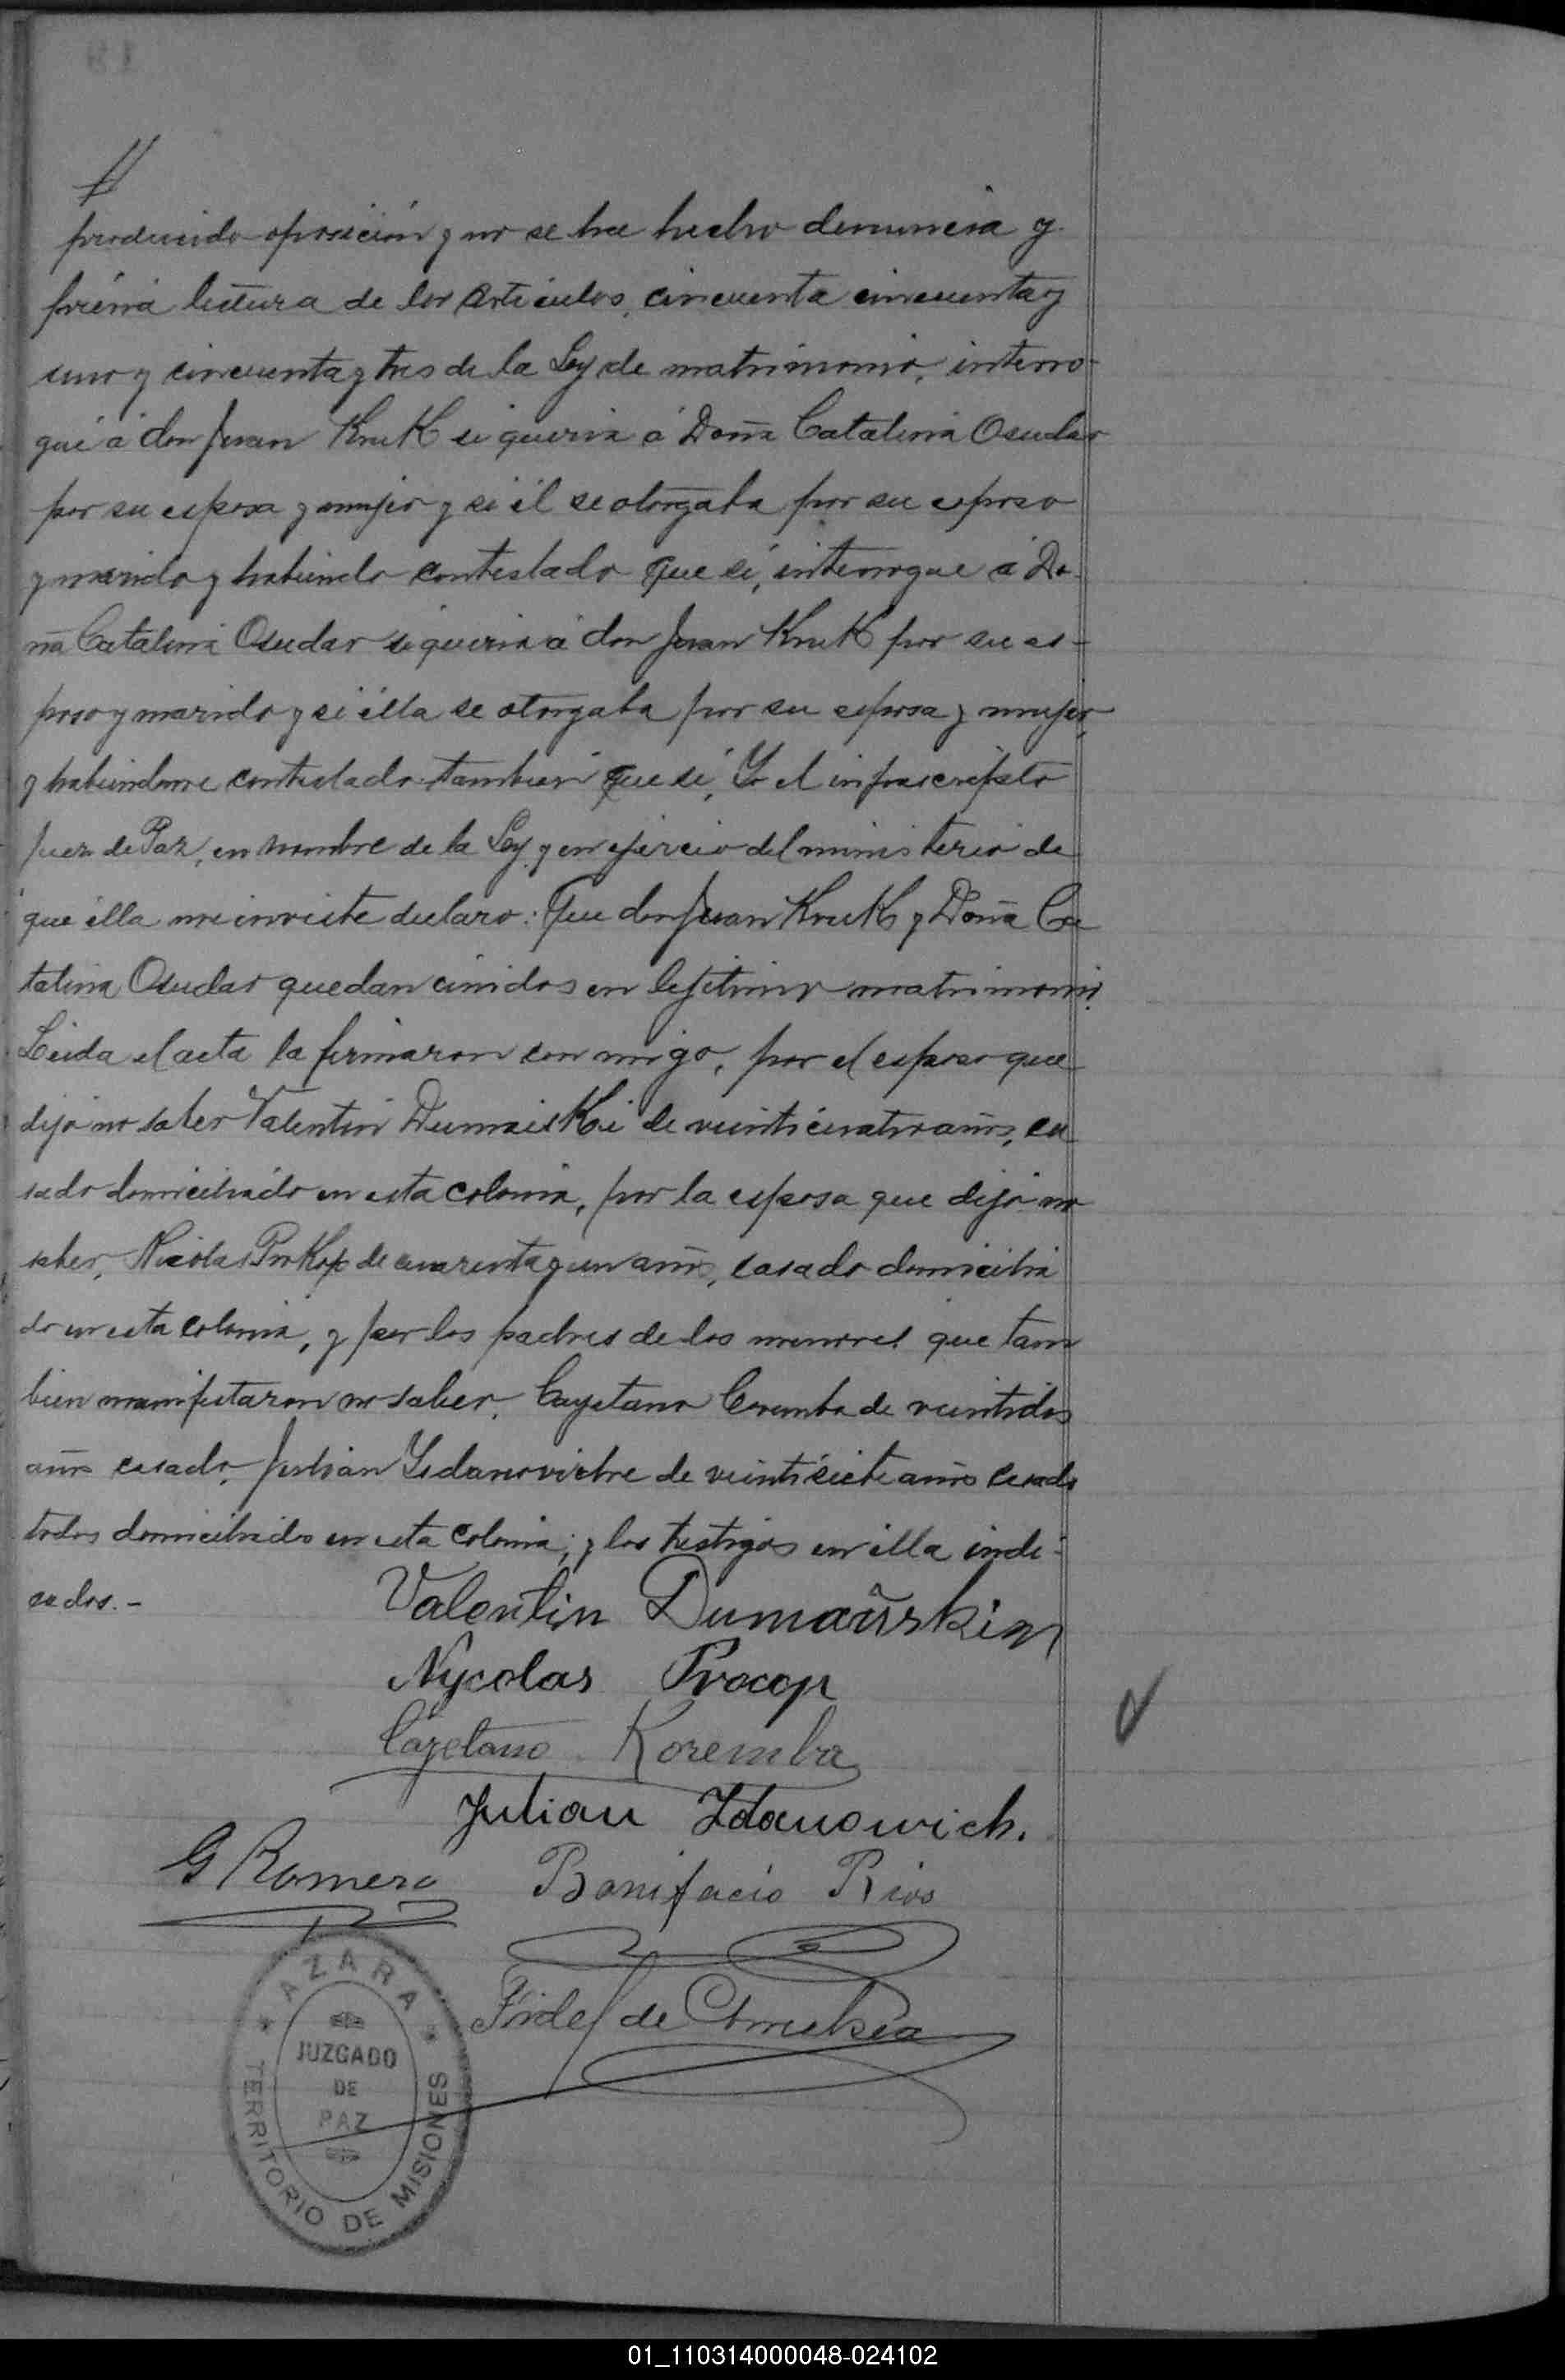 //
producido oposición y no se ha hecho denuncia y
prévia lectura de los articulos, cincuenta cincuenta y
uno y cincuenta y tres de la Ley de matrimonio, interro-
gué á don Juan KruK si queria á Doña Catalina Osudar
por su esposa y mujer y si él se otorgaba por su esposo
y marido y habiendo contestado que si, interrogue á Do-
ña Catalina Osudar si queria á don Juan KruK por su es-
poso y marido y si élla se otorgaba por su esposa y mujer,
y habiendome contestado tambien que si, Yo el infrascripto
Juez de Paz, en nombre de la Ley y en ejercio del ministerio de
que élla me inviste declaro: Que don Juan KruK y Doña Ca
talina Osudar quedan únidos en lejitimo matrimonio.
Leida el acta la firmaron con migo, por el esposo que
dijo no saber Valentin DumaisKi de veinticuatro años, ca
sado domiciliado en esta colonia, por la esposa que dijo no
saber, Nicolas ProKop de cuarenta y un años, casado domicilia
do en esta colonia, y por los padres de los menores que tam
bien manifestaron no saber, Cayetano Coremba de veintidos
años casado, Julian Ysdanoviche de veintisiete años casado
todos domiciliado en esta colonia; y los testigos en élla indi-
cados.-
Valentin Dumański
Nycolas Procop
Cayetano Koremba
Julian Zdanowich.
G Romero Bonifacio Rios
Fidel de
AZARA
JUZGADO
DE
PAZ
TERRITORIO DE MISIONES
01_110314000048-024102